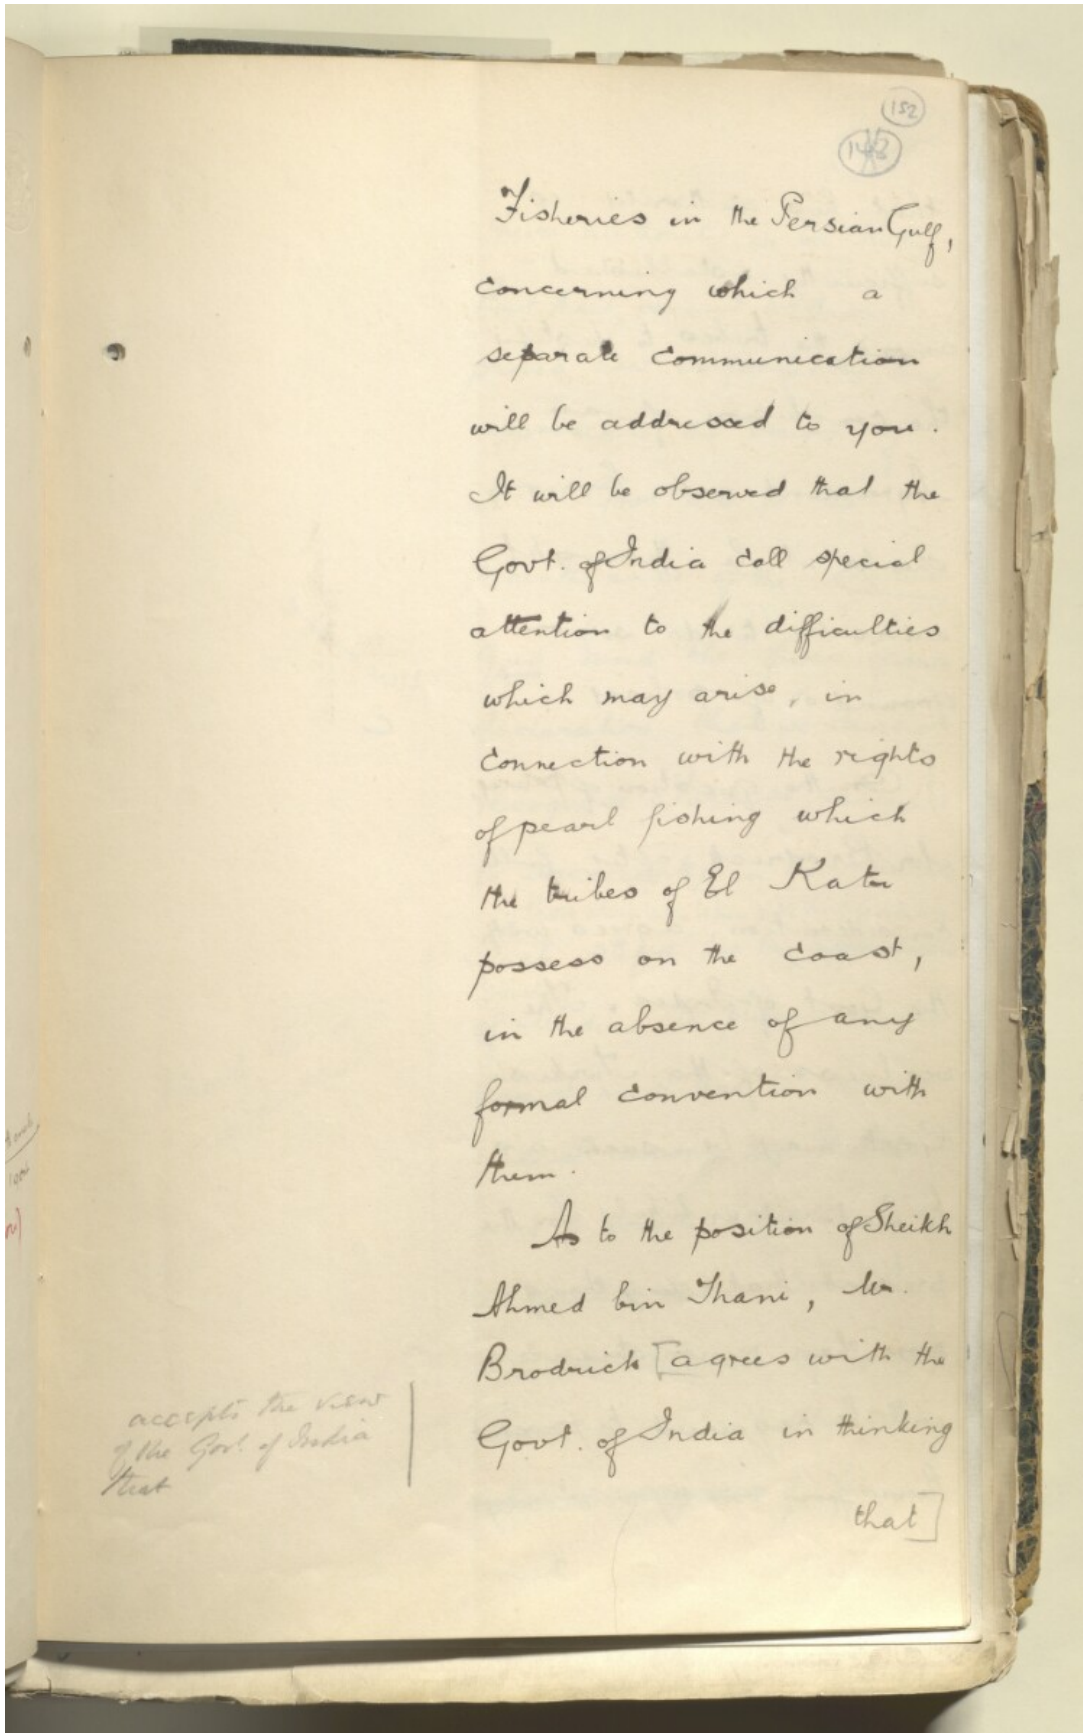 152
Fisheries in the Persian Gulf,
concerning which a
separate communication
will be addressed to you.
It will be observed that the
Govt. of India call special
attention to the difficulties
which may arise, in
connection with the rights
of pearl fishing which
the tribes of El Katr
possess on the coast,
in the absence of any
formal convention with
them.
As to the position of Sheikh
Ahmed bin Thani, Mr.
Brodrick [agrees with the
Govt. of India in thinking
that]
accepts the view
of the Govt. of India
that